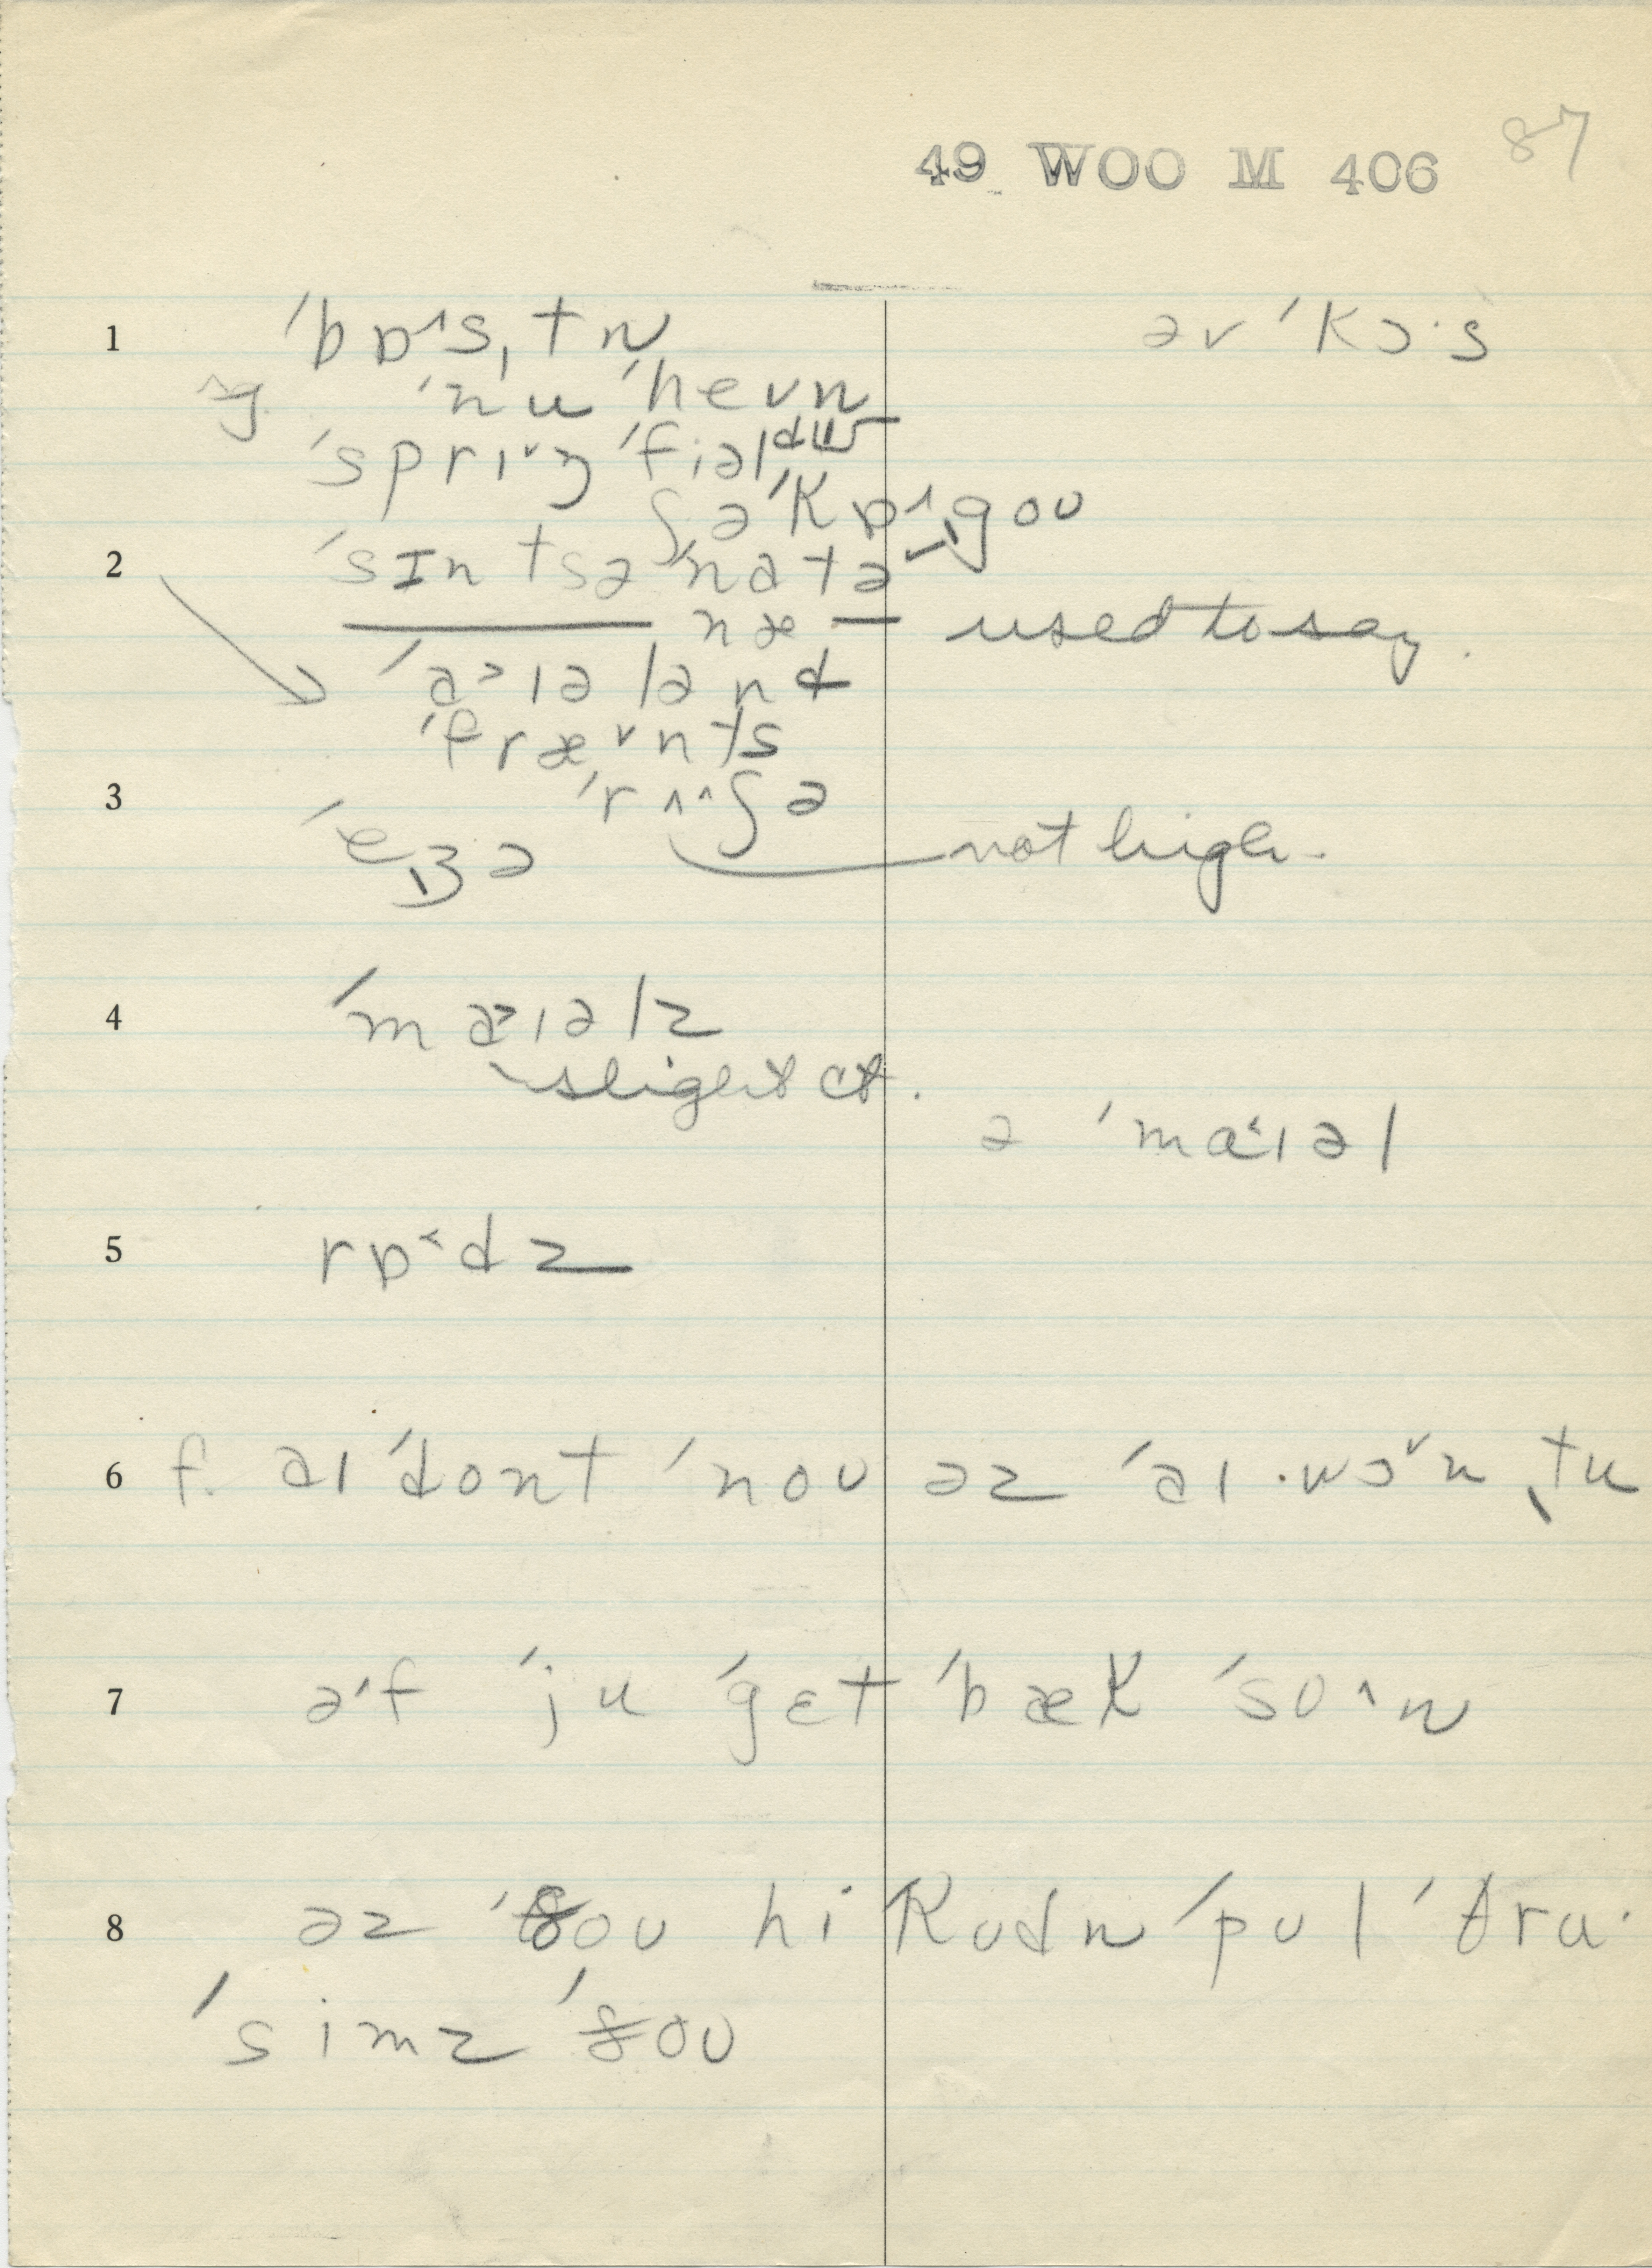 49 WOO M 406 87
1 ˈbɒ^s,tn əvˈkɔ·s
ˈnuˈhevn
ˈsprɪ˅ŋˈfiəld
ʃəˈkɒ^,gou
2 ˈsɪntsəˈnatə
næ — used to say.
ˈa>ɪələnd
ˈfræ˅nts
3 ˈrʌ^ʃə
ˈeʒə not high.
4 ˈma>ɪəlz
slight ct.
ə ˈma<ɪəl
5 rɒ<dz
6 f. aɪ ˈdont ˈnoʊ əz ˈaɪ ·wɔ˅n ,tu
7 ə'f ˈju ˈgɛt ˈbæk ˈsʊ^n
8 əz ˈðoʊ hi kʊdn ˈpʊl ˈθru·
ˈsimz ˈðoʊ